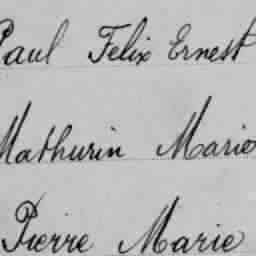 Paul Felix Ernest
Mathurin Marie
Pierre Marie